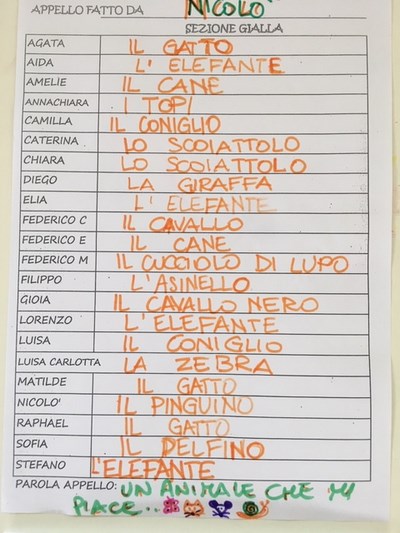 APPELLO FATTO DA NICOLO'
SEZIONE GIALLA
AGATA IL GATTO
AIDA L'ELEFANTE
AMELIE IL CANE
ANNACHIARA I TOPI
CAMILLA IL CONIGLIO
CATERINA LO SCOIATTOLO
CHIARA LO SCOIATTOLO
DIEGO LA GIRAFFA
ELIA L'ELEFANTE
FEDERICO C IL CAVALLO
FEDERICO E IL CANE
FEDERICO M IL CUCCIOLO DI LUPO
FILIPPO L'ASINELLO
GIOIA IL CAVALLO NERO
LORENZO L'ELEFANTE
LUISA IL CONIGLIO
LUISA CARLOTTA LA ZEBRA
MATILDE IL GATTO
NICOLO' IL PINGUINO
RAPHAEL IL GATTO
SOFIA IL DELFINO
STEFANO L'ELEFANTE
PAROLA APPELLO: UN ANIMALE CHE MI
PIACE..